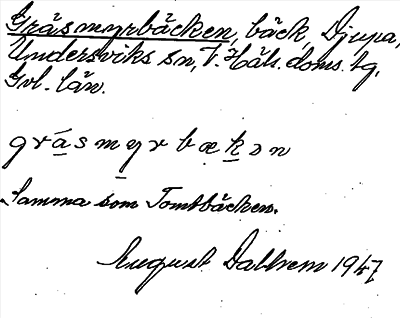 Gräsmyrbäcken, bäck, Djupa,
Undersviks sn, V. Häls. doms. tg,
Gvl. län.
gräsmyrbækən
Samma som Tomtbäcken.
August Dallrem 1947